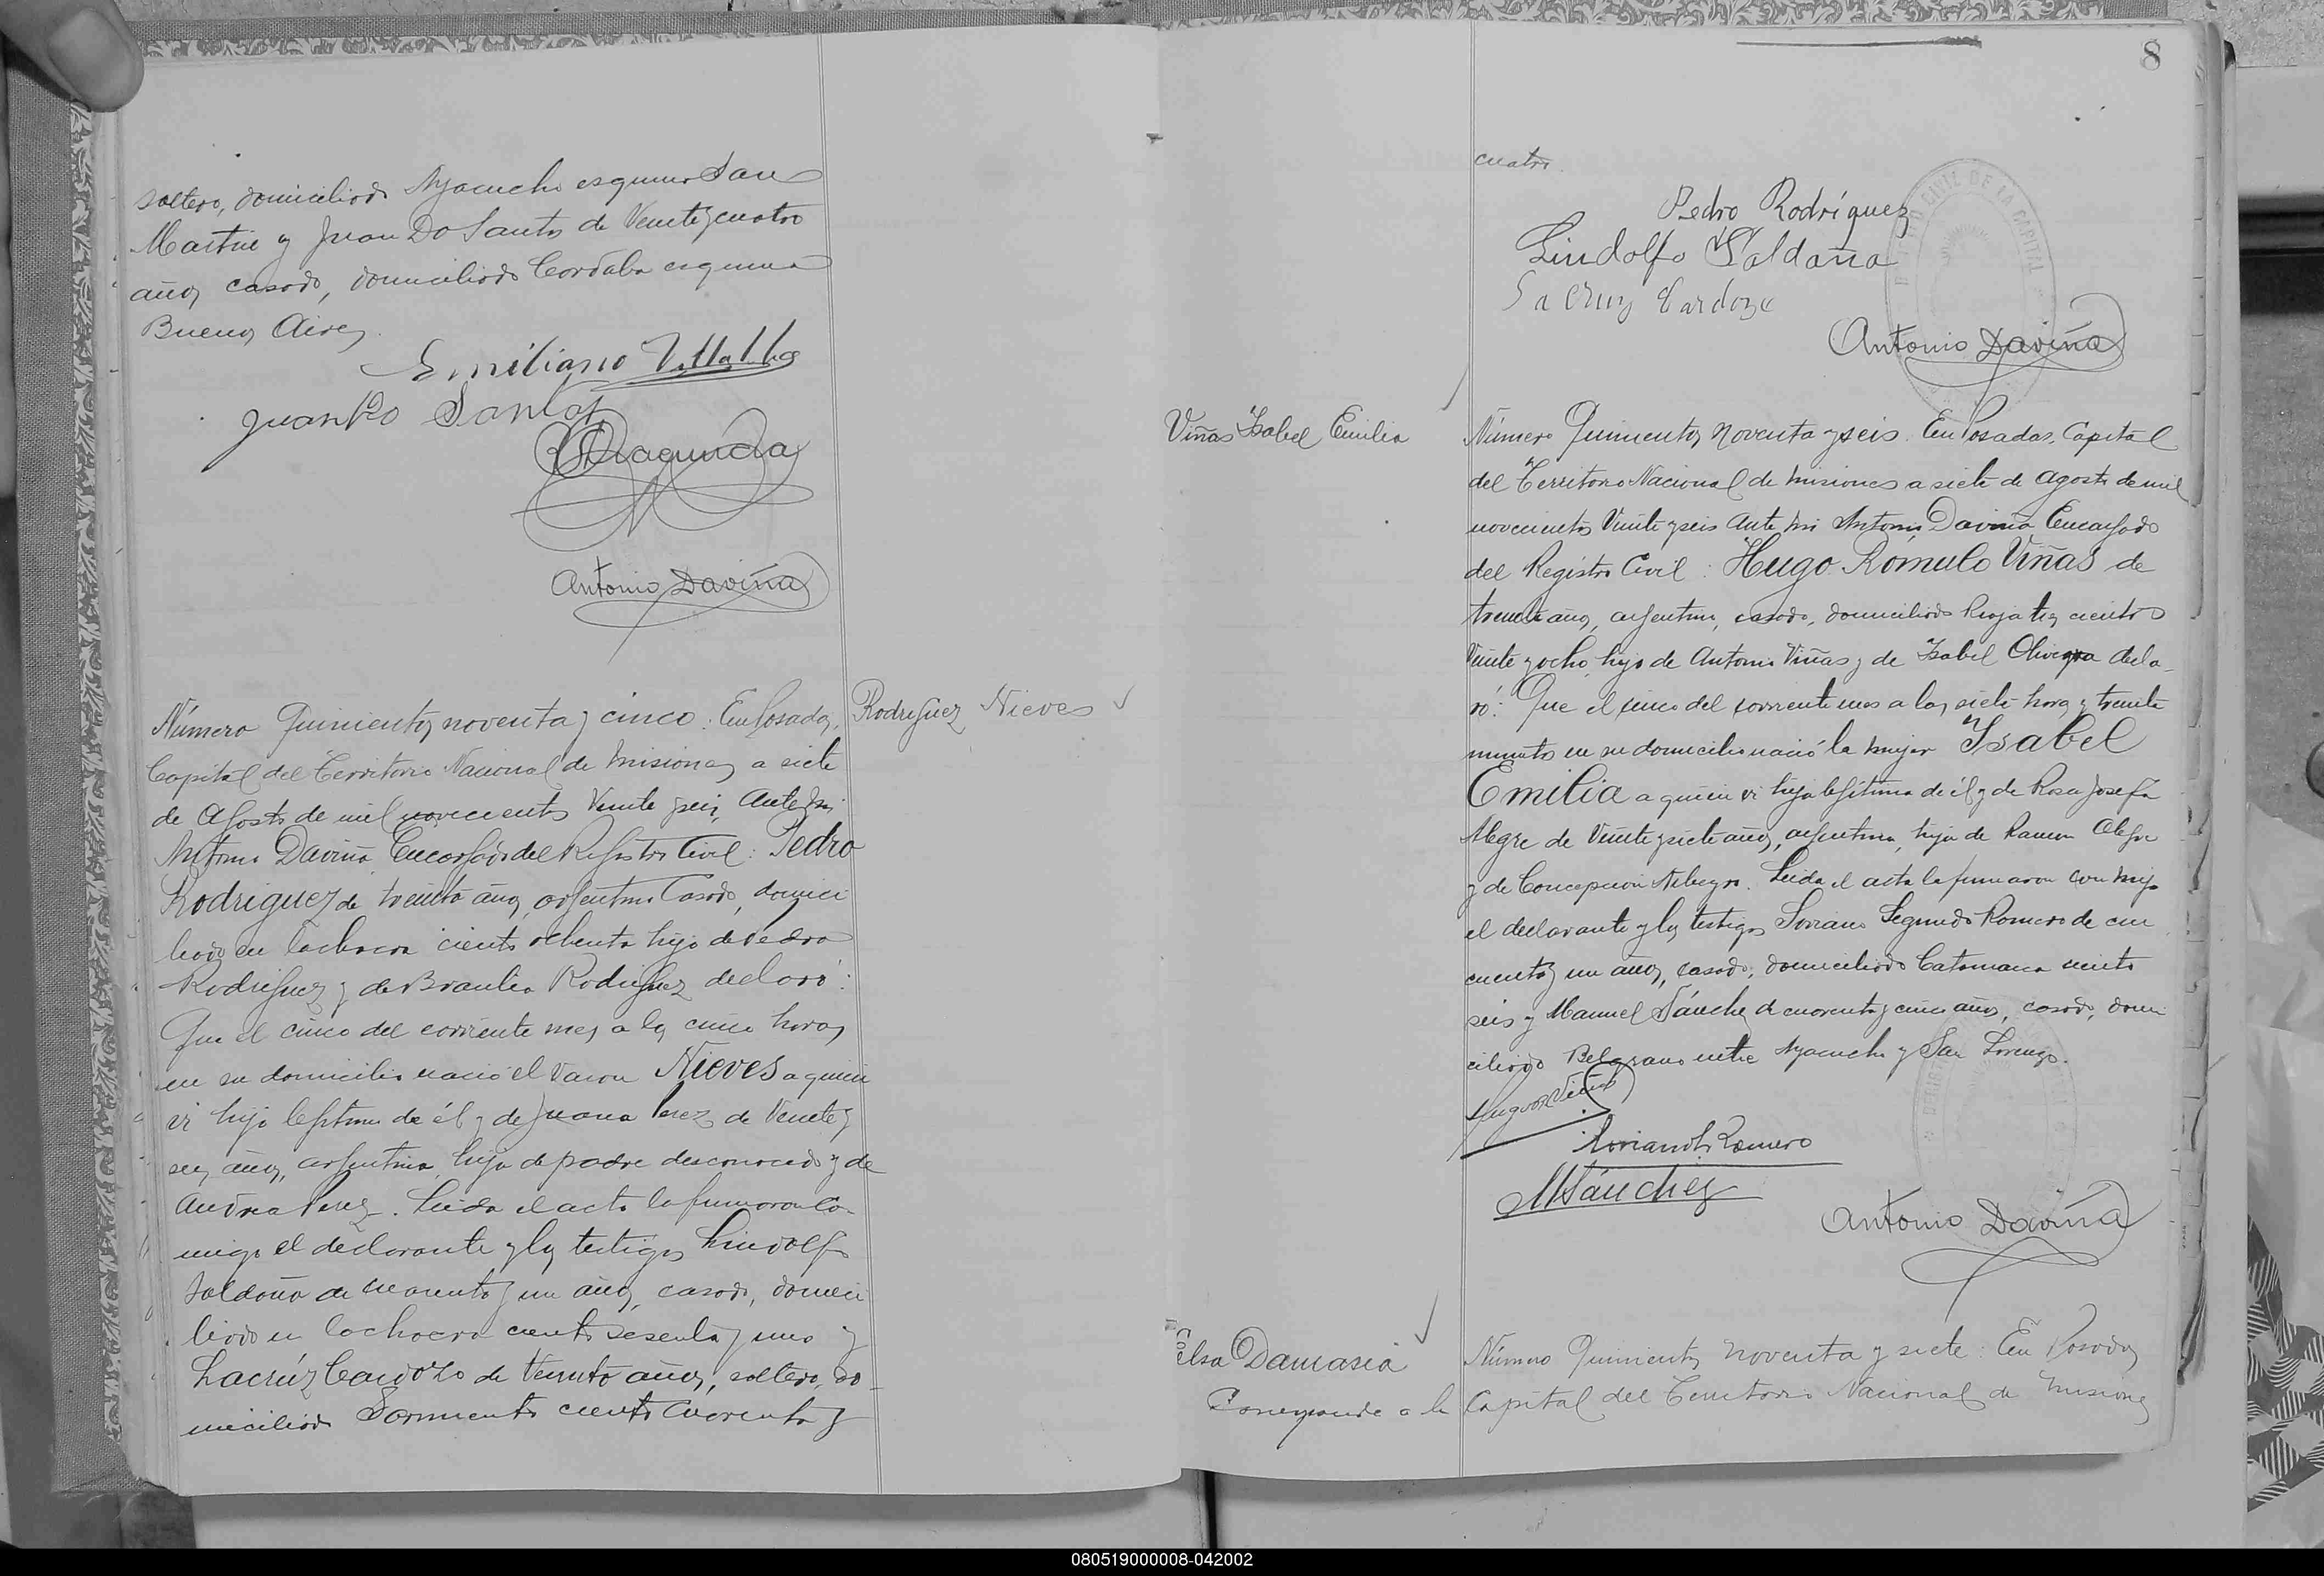 soltero, domiciliado Ayacucho esquina San
Martin y Juan Do Santos de Veinte y cuatro
años casado, domiciliado Cordoba esquina
Buenos Aires
Emiliano Villalba
Juan Do Santos
Antonio Daviña
Número Quinientos noventa y cinco: En Posadas,
Capital del Territorio Nacional de Misiones a siete
de Agosto de mil novecientos Veinte y seis, Ante mi
Antonio Daviña Encargado del Registro Civil: Pedro
Rodriguez de treinta años, argentino Casado, domici
liado en la chacra ciento ochenta hijo de Pedro
Rodriguez y de Braulia Rodriguez declaró:
Que el cinco del corriente mes a las cinco horas
en su domicilio nació el Varon Nieves a quien
vi hijo legitimo de él y de Juana Perez de Veinte y
seis años, argentina, hija de padre desconocido y de
Andrea Perez. Leida el acta la firmaron co-
migo el declarante y los testigos Lindolfo
Saldaña de cuarenta y un años, casado, domici
liado en la chacra ciento sesenta y uno y
Lacrúz Cardozo de Veinte años, soltero, do-
miciliado Sarmiento ciento Cuarenta y
Rodriguez Nieves
8
cuatro.
Pedro Rodríguez
Lindolfo Saldaña
La Cruz Cardozo
Antonio Daviña
Viñas Isabel Emilia
Número Quinientos noventa y seis. En Posadas, Capital
del Territorio Nacional de Misiones a siete de Agosto de mil
novecientos Veinte y seis Ante mi Antonio Daviña Encargado
del Registro Civil: Hugo Romulo Viñas de
treinta años, argentino, casado, domiciliado Rioja tres cientos
Veinte y ocho, hijo de Antonio Viñas y de Isabel Olivera decla-
ró: Que el cinco del corriente mes a las siete horas y treinta
minutos en su domicilio nació la mujer Isabel
Emilia a quien vi hija legitima de él y de Rosa Josefa
Alegre de Veinte y siete años, argentina, hija de Ramon Alegre
y de Concepcion. Leida el acta la firmaron con migo
el declarante y los testigos Soriano Segundo Romero de cin
cuenta y un años, casado, domiciliado Catamarca ciento
seis y Manuel Sánchez de cuarenta y cinco años, casado, domi
ciliado Belgrano entre Ayacucho y San Lorenzo.
Hugo R Viñas
Soriano S. Romero
MSánchez
Antonio Daviña
Elsa Damasia
Corresponde a la
Número Quinientos noventa y siete: En Posadas
Capital del Territorio Nacional de Misiones
080519000008-042002